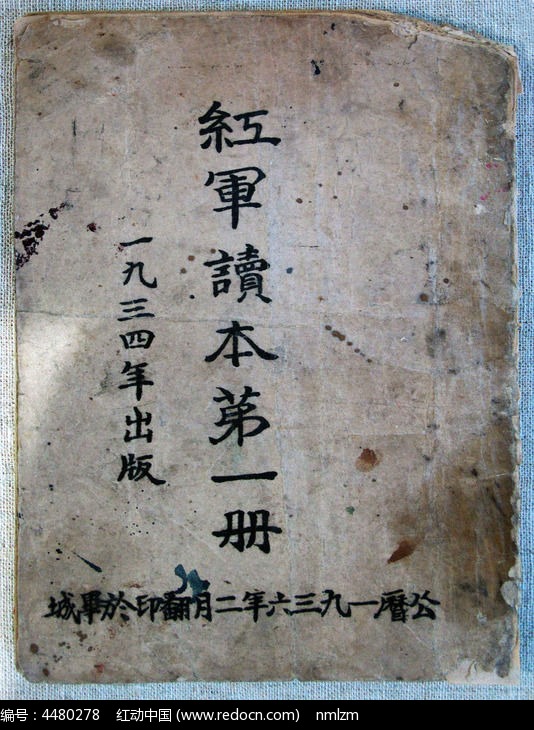 紅軍讀本第一册
一九三四年出版
公曆一九三六年二月翻印於畢城
编号：4480278 红动中国 (www.redocn.com) nmlzm